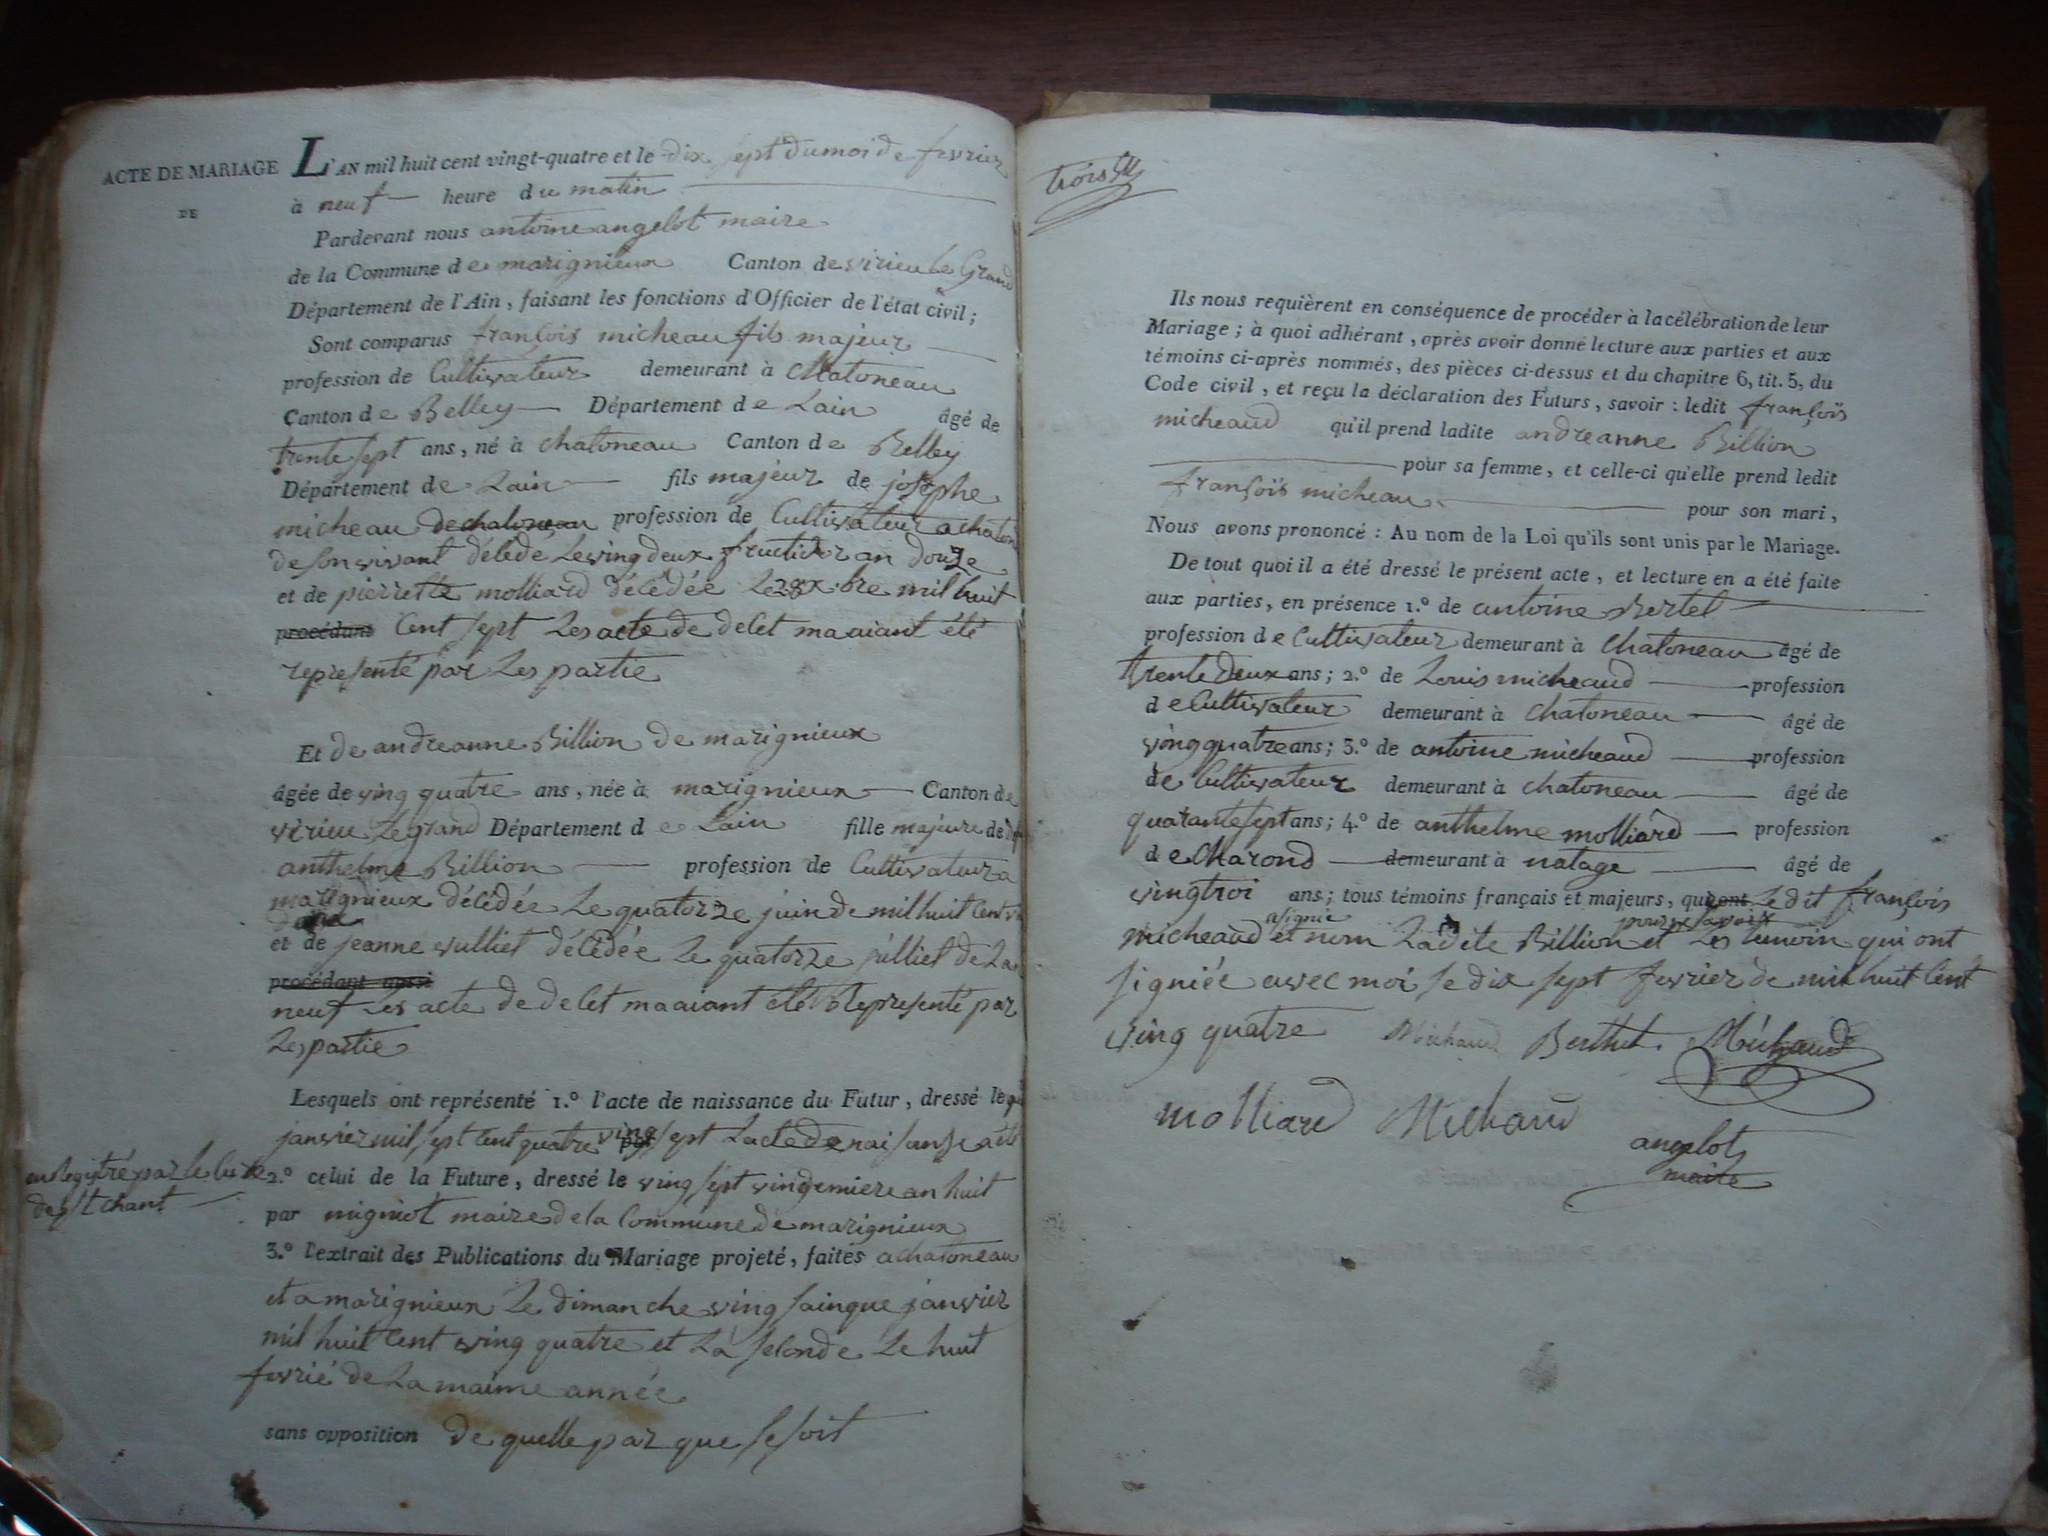 ACTE DE MARIAGE
DE
L'AN mil huit cent vingt-quatre et le dix sept du moi de fevrier
à neuf heure du matin
Pardevant nous antoine angelot maire
de la Commune de marignieux Canton de virieu le Grand
Département de l'Ain, faisant les fonctions d'Officier de l'état civil;
Sont comparus françois micheau fils majeur
profession de Cultivateur demeurant à Chatoneau
Canton de Belley Département de Lain âgé de
trente sept ans, né à chatoneau Canton de Belley
Département de Lain fils majeur de josephe
micheau de chatoneau profession de Cultivateur a chaton
de son vivant décédé le ving deux fructidor an douze
et de pierrette molliard décédée le 28 x.bre mil huit
procédant Cent sept Les acte de delet ma aiant été
representé par Les partie
Et de andreanne Billion de marignieux
âgée de ving quatre ans, née à marignieux Canton de
virieu Le grand Département de Lain fille majeure de
anthelme Billion profession de Cultivateur a
marignieux décédée Le quatorze juin de mil huit Cent
et de jeanne vulliet décédée Le quatorze jiulliet de La
procédant aussi
neuf Les acte de delet ma aiant été Representé par
Les partie
Lesquels ont représenté 1.º l'acte de naissance du Futur, dressé le
janvier mil sept Cent quatre ving sept Lacte de naisanse a été
enRegistré par le Cure
de st chant
2.º celui de la Future, dressé le ving sept vindemiere an huit
par migniot maire de la Commune de marignieux
3.º l'extrait des Publications du Mariage projeté, faites a chatoneau
et a marignieux Le dimanche ving sainque janvier
mil huit Cent ving quatre et La seconde Le huit
fevrié de La maime année
sans opposition de quelle par que se soit
trois
Ils nous requièrent en conséquence de procéder à la célébration de leur
Mariage; à quoi adhérant, après avoir donné lecture aux parties et aux
témoins ci-après nommés, des pièces ci-dessus et du chapitre 6, tit. 5, du
Code civil, et reçu la déclaration des Futurs, savoir: ledit françois
micheaud qu'il prend ladite andreanne Billion
pour sa femme, et celle-ci qu'elle prend ledit
françois micheau pour son mari,
Nous avons prononcé: Au nom de la Loi qu'ils sont unis par le Mariage.
De tout quoi il a été dressé le présent acte, et lecture en a été faite
aux parties, en présence 1.º de antoine Bertet
profession de Cultivateur demeurant à Chatoneau âgé de
trente deux ans; 2.º de Louis micheaud profession
de Cultivateur demeurant à Chatoneau âgé de
ving quatre ans; 3.º de antoine micheaud profession
de Cultivateur demeurant à chatoneau âgé de
quarante sept ans; 4.º de anthelme molliard profession
de Charond demeurant à natage âgé de
vingtroi ans; tous témoins français et majeurs, qui ont Le dit françois
asignié
micheaud et nom Ladite Billion et Les temoin qui ont
signiée avec moi Le dix sept fevrier de mil huit Cent
ving quatre Michaud Berthet Michaud
molliard Michaud
angelot
maire